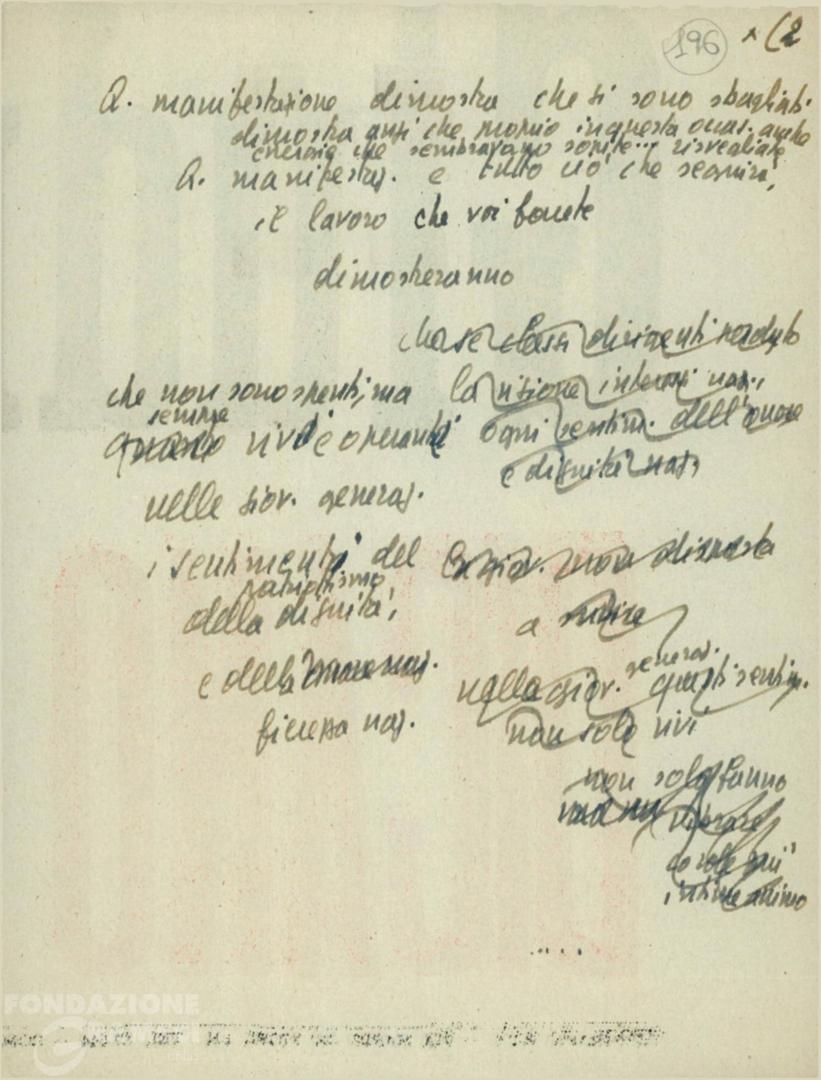 196 x (2
Q. manifestazione dimostra che si sono sbagliati
dimostra anzi che proprio in questa occas. anche
energie che sembravano sopite... risvegliate
Q. manifestaz. e tutto ciò che seguirà,
il lavoro che voi farete
dimostreranno
che se classi dirigenti perduto
che non sono spenti, ma la visione interessi naz.,
sempre
vivi e operanti ogni sentim. dell'onore
e dignità naz.
nelle giov. generaz.
i sentimenti del La giov. non disposta
patriottismo
della dignità, a subire
generaz.
e della naz. nella giov. questi sentim.
fierezza naz. non solo vivi
non solo fanno
vibrare
corde più
intime animo
....
FONDAZIONE